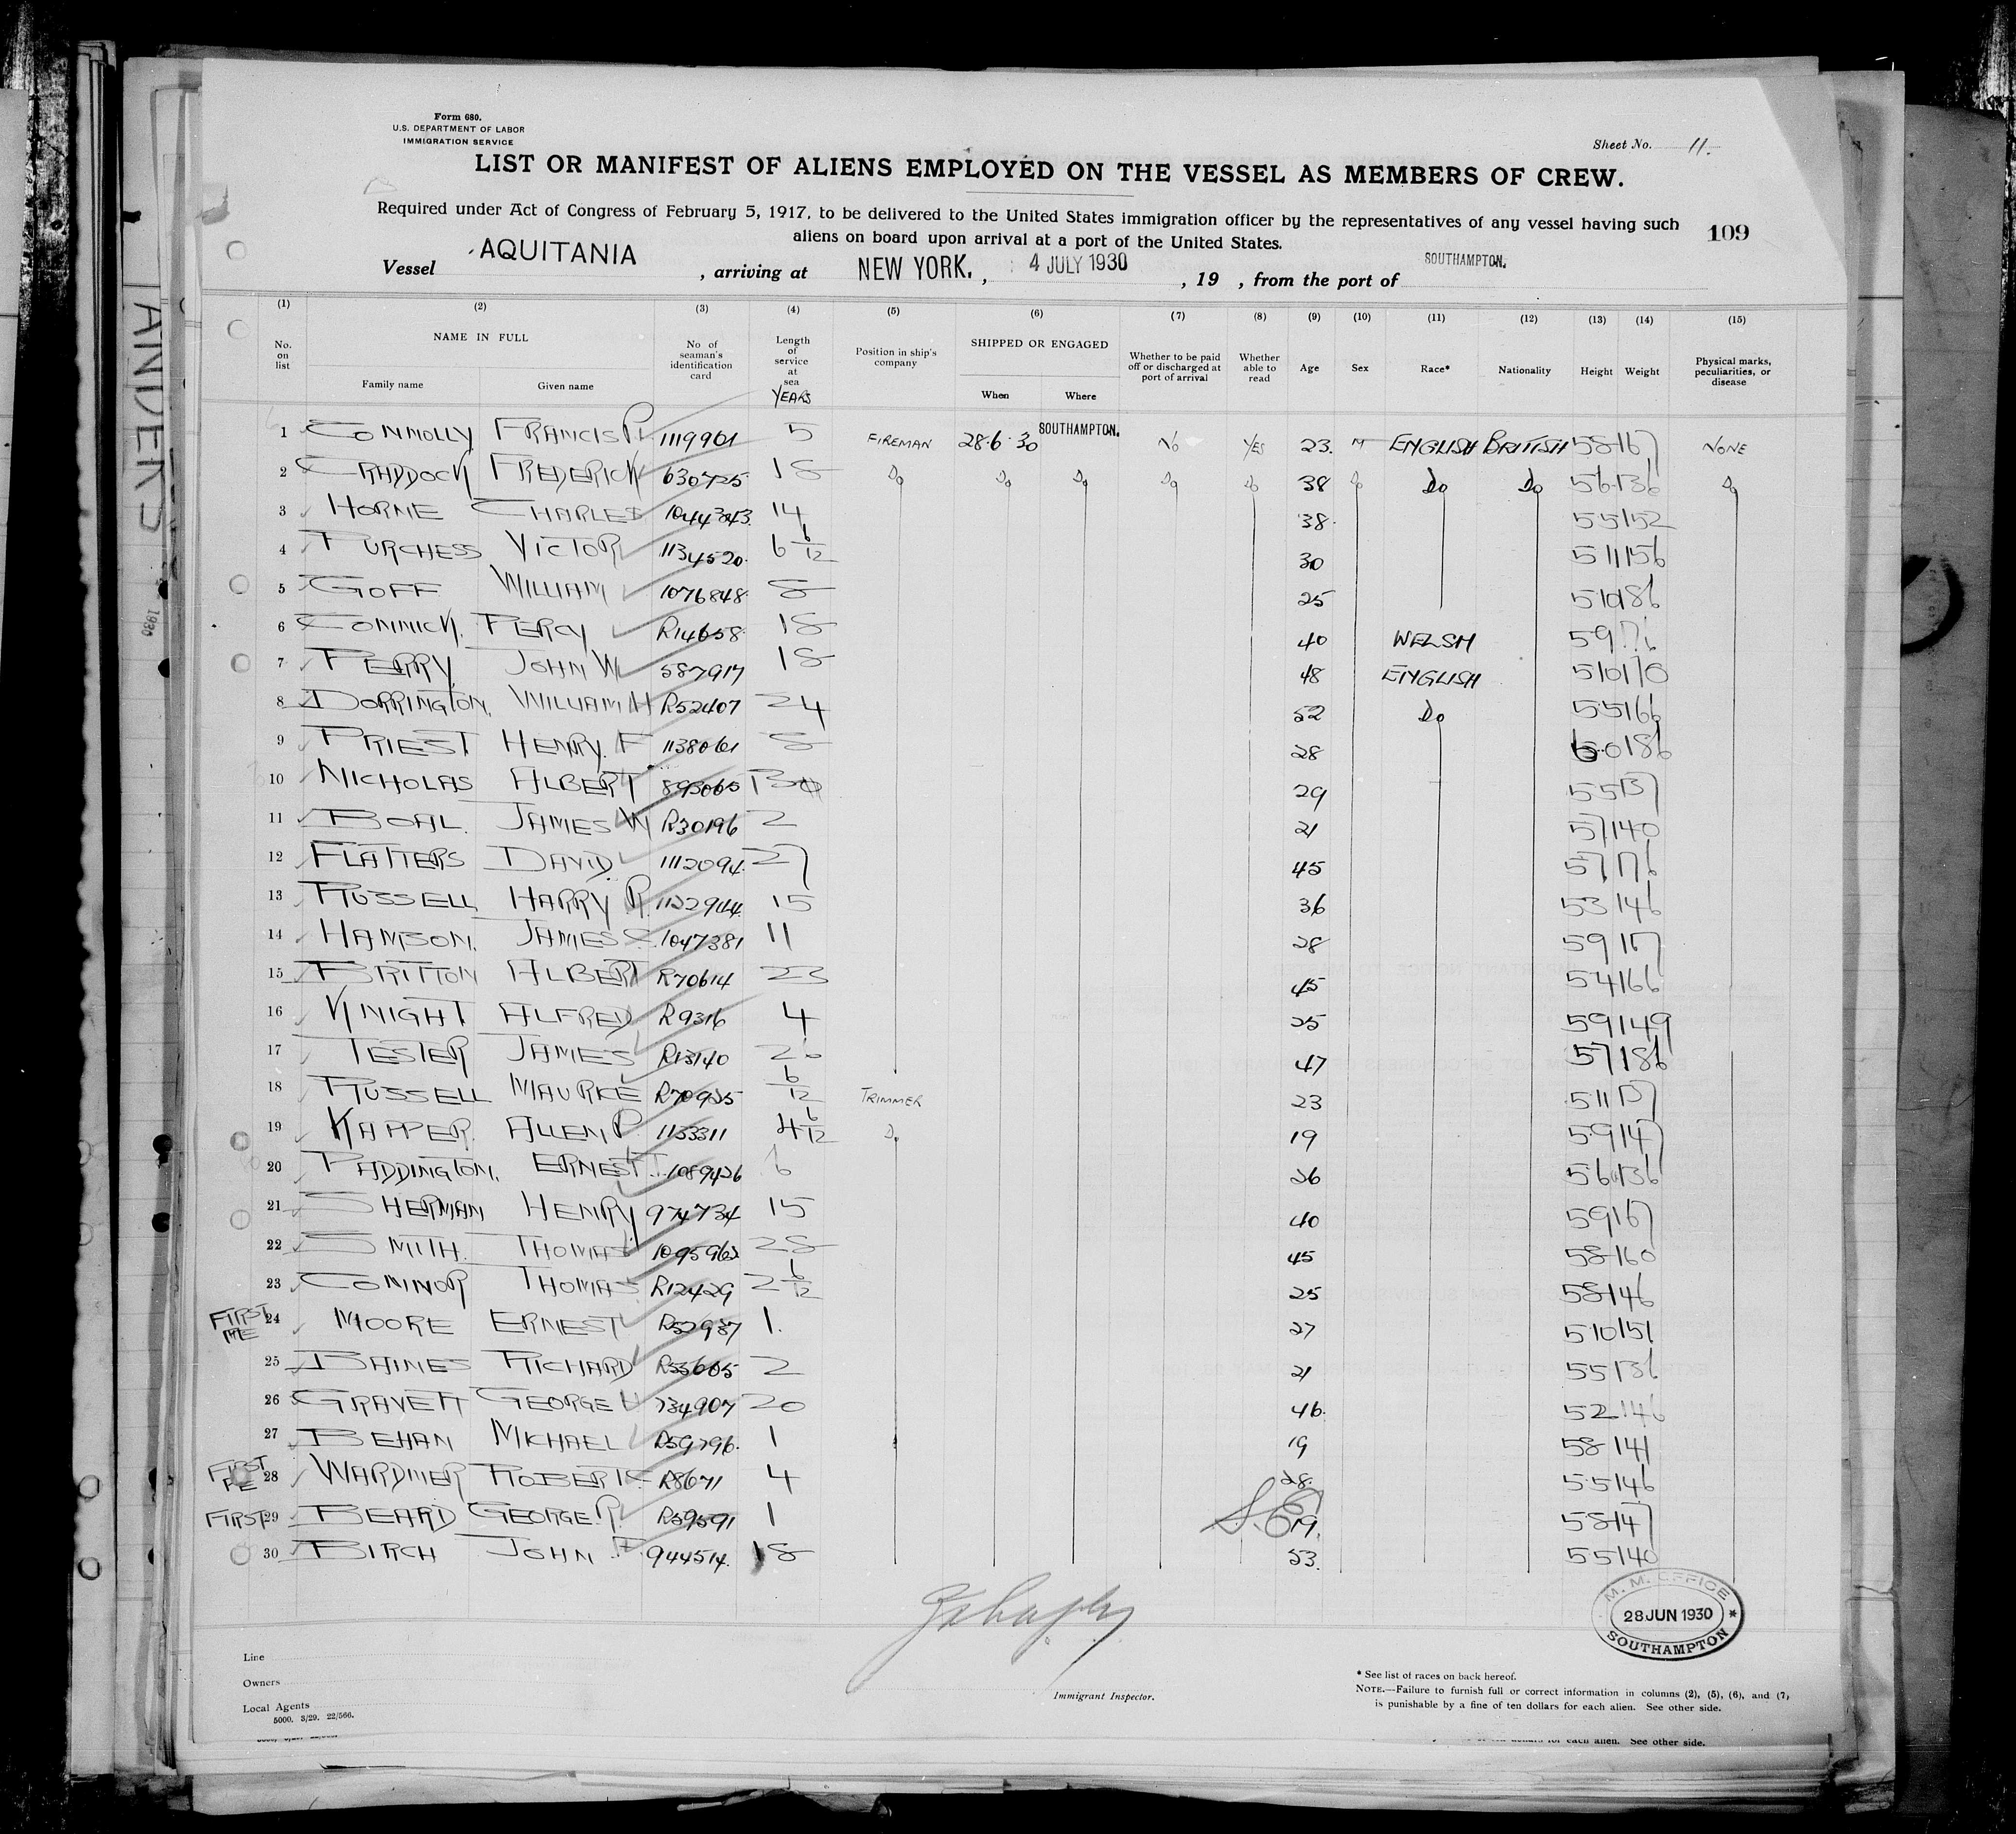 Form 680.
U.S. DEPARTMENT OF LABOR
IMMIGRATION SERVICE
Sheet No. 11.
LIST OR MANIFEST OF ALIENS EMPLOYED ON THE VESSEL AS MEMBERS OF CREW.
Required under Act of Congress of February 5, 1917, to be delivered to the United States immigration officer by the representatives of any vessel having such
aliens on board upon arrival at a port of the United States.
109
Vessel AQUITANIA, arriving at NEW YORK., 4 JULY 1930, 19 , from the port of SOUTHAMPTON.
(1) (2) (3) (4) (5) (6) (7) (8) (9) (10) (11) (12) (13) (14) (15)
No. on list NAME IN FULL Family name Given name No of seaman's identification card Length of service at sea YEARS Position in ship's company SHIPPED OR ENGAGED When Where Whether to be paid off or discharged at port of arrival Whether able to read Age Sex Race* Nationality Height Weight Physical marks, peculiarities, or disease
1 CONNOLLY FRANCIS P. 1119961 5 FIREMAN 28.6.30 SOUTHAMPTON. No YES 23. M ENGLISH BRITISH 58 167 NONE
2 CRADDOCK FREDERICK 630725 18 Do Do Do Do Do 38 Do Do Do 56 136 Do
3 HORNE CHARLES 1044343 14 38. 55 152
4 PURCHESS VICTOR 1134520. 6 6/12 30 511 156
5 GOFF WILLIAM 1076848. 8 25 510 186
6 PERCY R14658. 18 40 WELSH 59
7 PERRY JOHN W 587917 18 48 ENGLISH 510 170
8 DORRINGTON. WILLIAM H R52407 24 52 Do 55 166
9 PRIEST HENRY. F 1138061 8 28 60 186
10 NICHOLAS ALBERT 893065 29 55 137
11 BOAL. JAMES W R30196 2 21 57 140
12 FLATTERS DAVID. 1112094. 27 45 57 176
13 RUSSELL HARRY R. 1122944. 15 36 53 146
14 HAMSON. JAMES C. 1047381 11 28 59 167
15 BRITTON ALBERT R70614 23 45 54 166
16 KNIGHT ALFRED R9316 4 25 59 149
17 TESTER JAMES R13140 26 47 57 186
18 RUSSELL MAURICE R70925 6/12 TRIMMER 23 511 137
19 KAPPER. ALLEN P. 1133311 4 6/12 Do 19 59 147
20 PADDINGTON. ERNEST T. 1089426 6 26 56 136
21 SHERMAN HENRY 974734 15 40 59 167
22 SMITH. THOMAS 1095962 28 45 58 160
23 CONNOR THOMAS R12429 2 6/12 25 58 146
FIRST ME 24 MOORE ERNEST R52987 1. 27 510 151
25 BAINES RICHARD R55605 2 21 55 136
26 GRAVETT GEORGE H 734907 20 46. 52 146
27 BEHAN MICHAEL R59796. 1 19 58 141
FIRST 28 WARDNER ROBERT C R8671 4 28. 55 146
FIRST 29 BEARD GEORGE. R. R59591 1 19. 58 147
30 BIRCH JOHN 944514. 18 53. 55 140
M. M. OFFICE
28 JUN 1930
SOUTHAMPTON
Line
Owners
Local Agents
5000. 3/29. 22/566.
Immigrant Inspector.
* See list of races on back hereof.
NOTE.—Failure to furnish full or correct information in columns (2), (5), (6), and (7)
is punishable by a fine of ten dollars for each alien. See other side.
for each alien. See other side.
ANDERS
1930